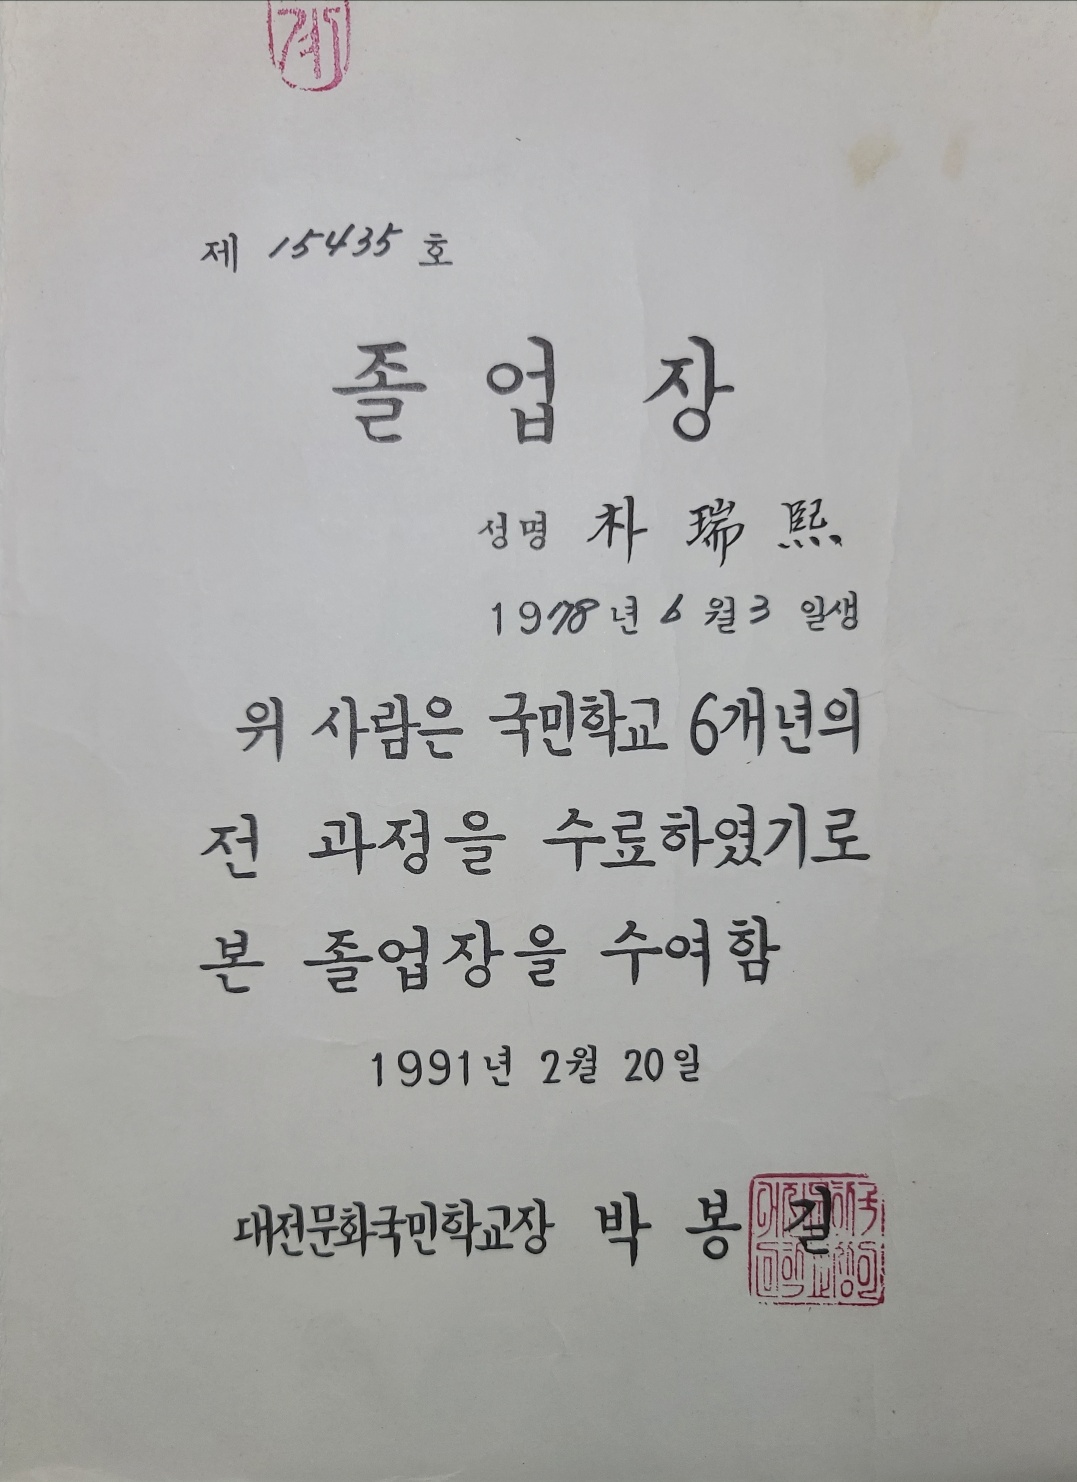 계
제 15435 호
졸 업 장
성명 朴 瑞 熙
1978년 6월 3일생
위 사람은 국민학교 6개년의
전 과정을 수료하였기로
본 졸업장을 수여함
1991년 2월 20일
대전문화국민학교장 박 봉 길